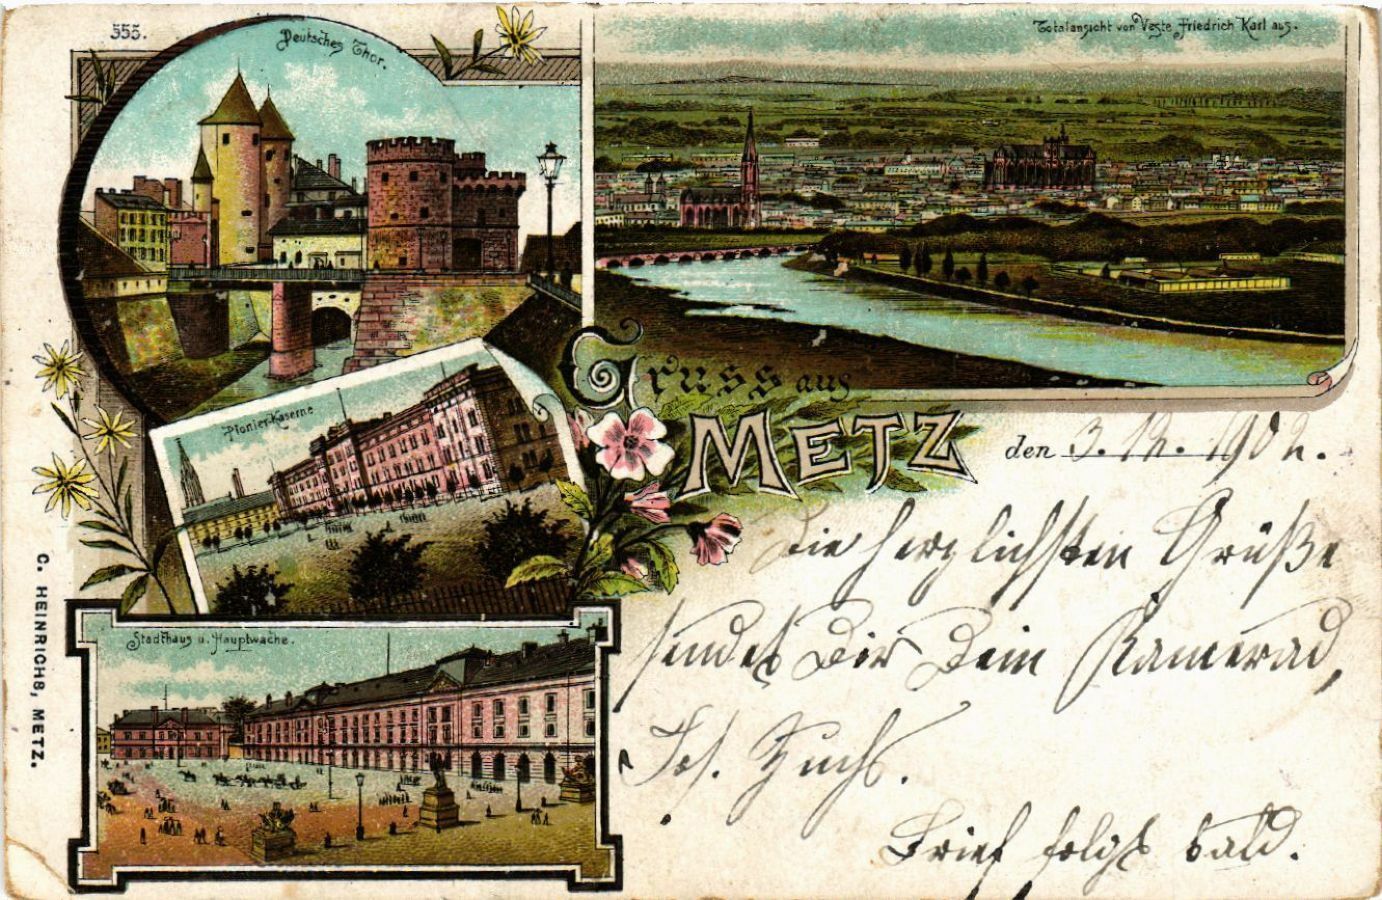 355.
Deutsches Thor.
Totalansicht von Veste Friedrich Karl aus.
Pionier-Kaserne
Gruss aus
METZ
den 3. 12. 1902.
Die herzlichsten Grüße
sendet Dir Dein Kamerad,
Jos. Fuchs.
Brief folgt bald.
Stadthaus u. Hauptwache.
C. HEINRICHS, METZ.